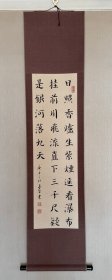 日照香爐生紫煙遙看瀑布
挂前川飛流直下三千尺疑
是銀河落九天